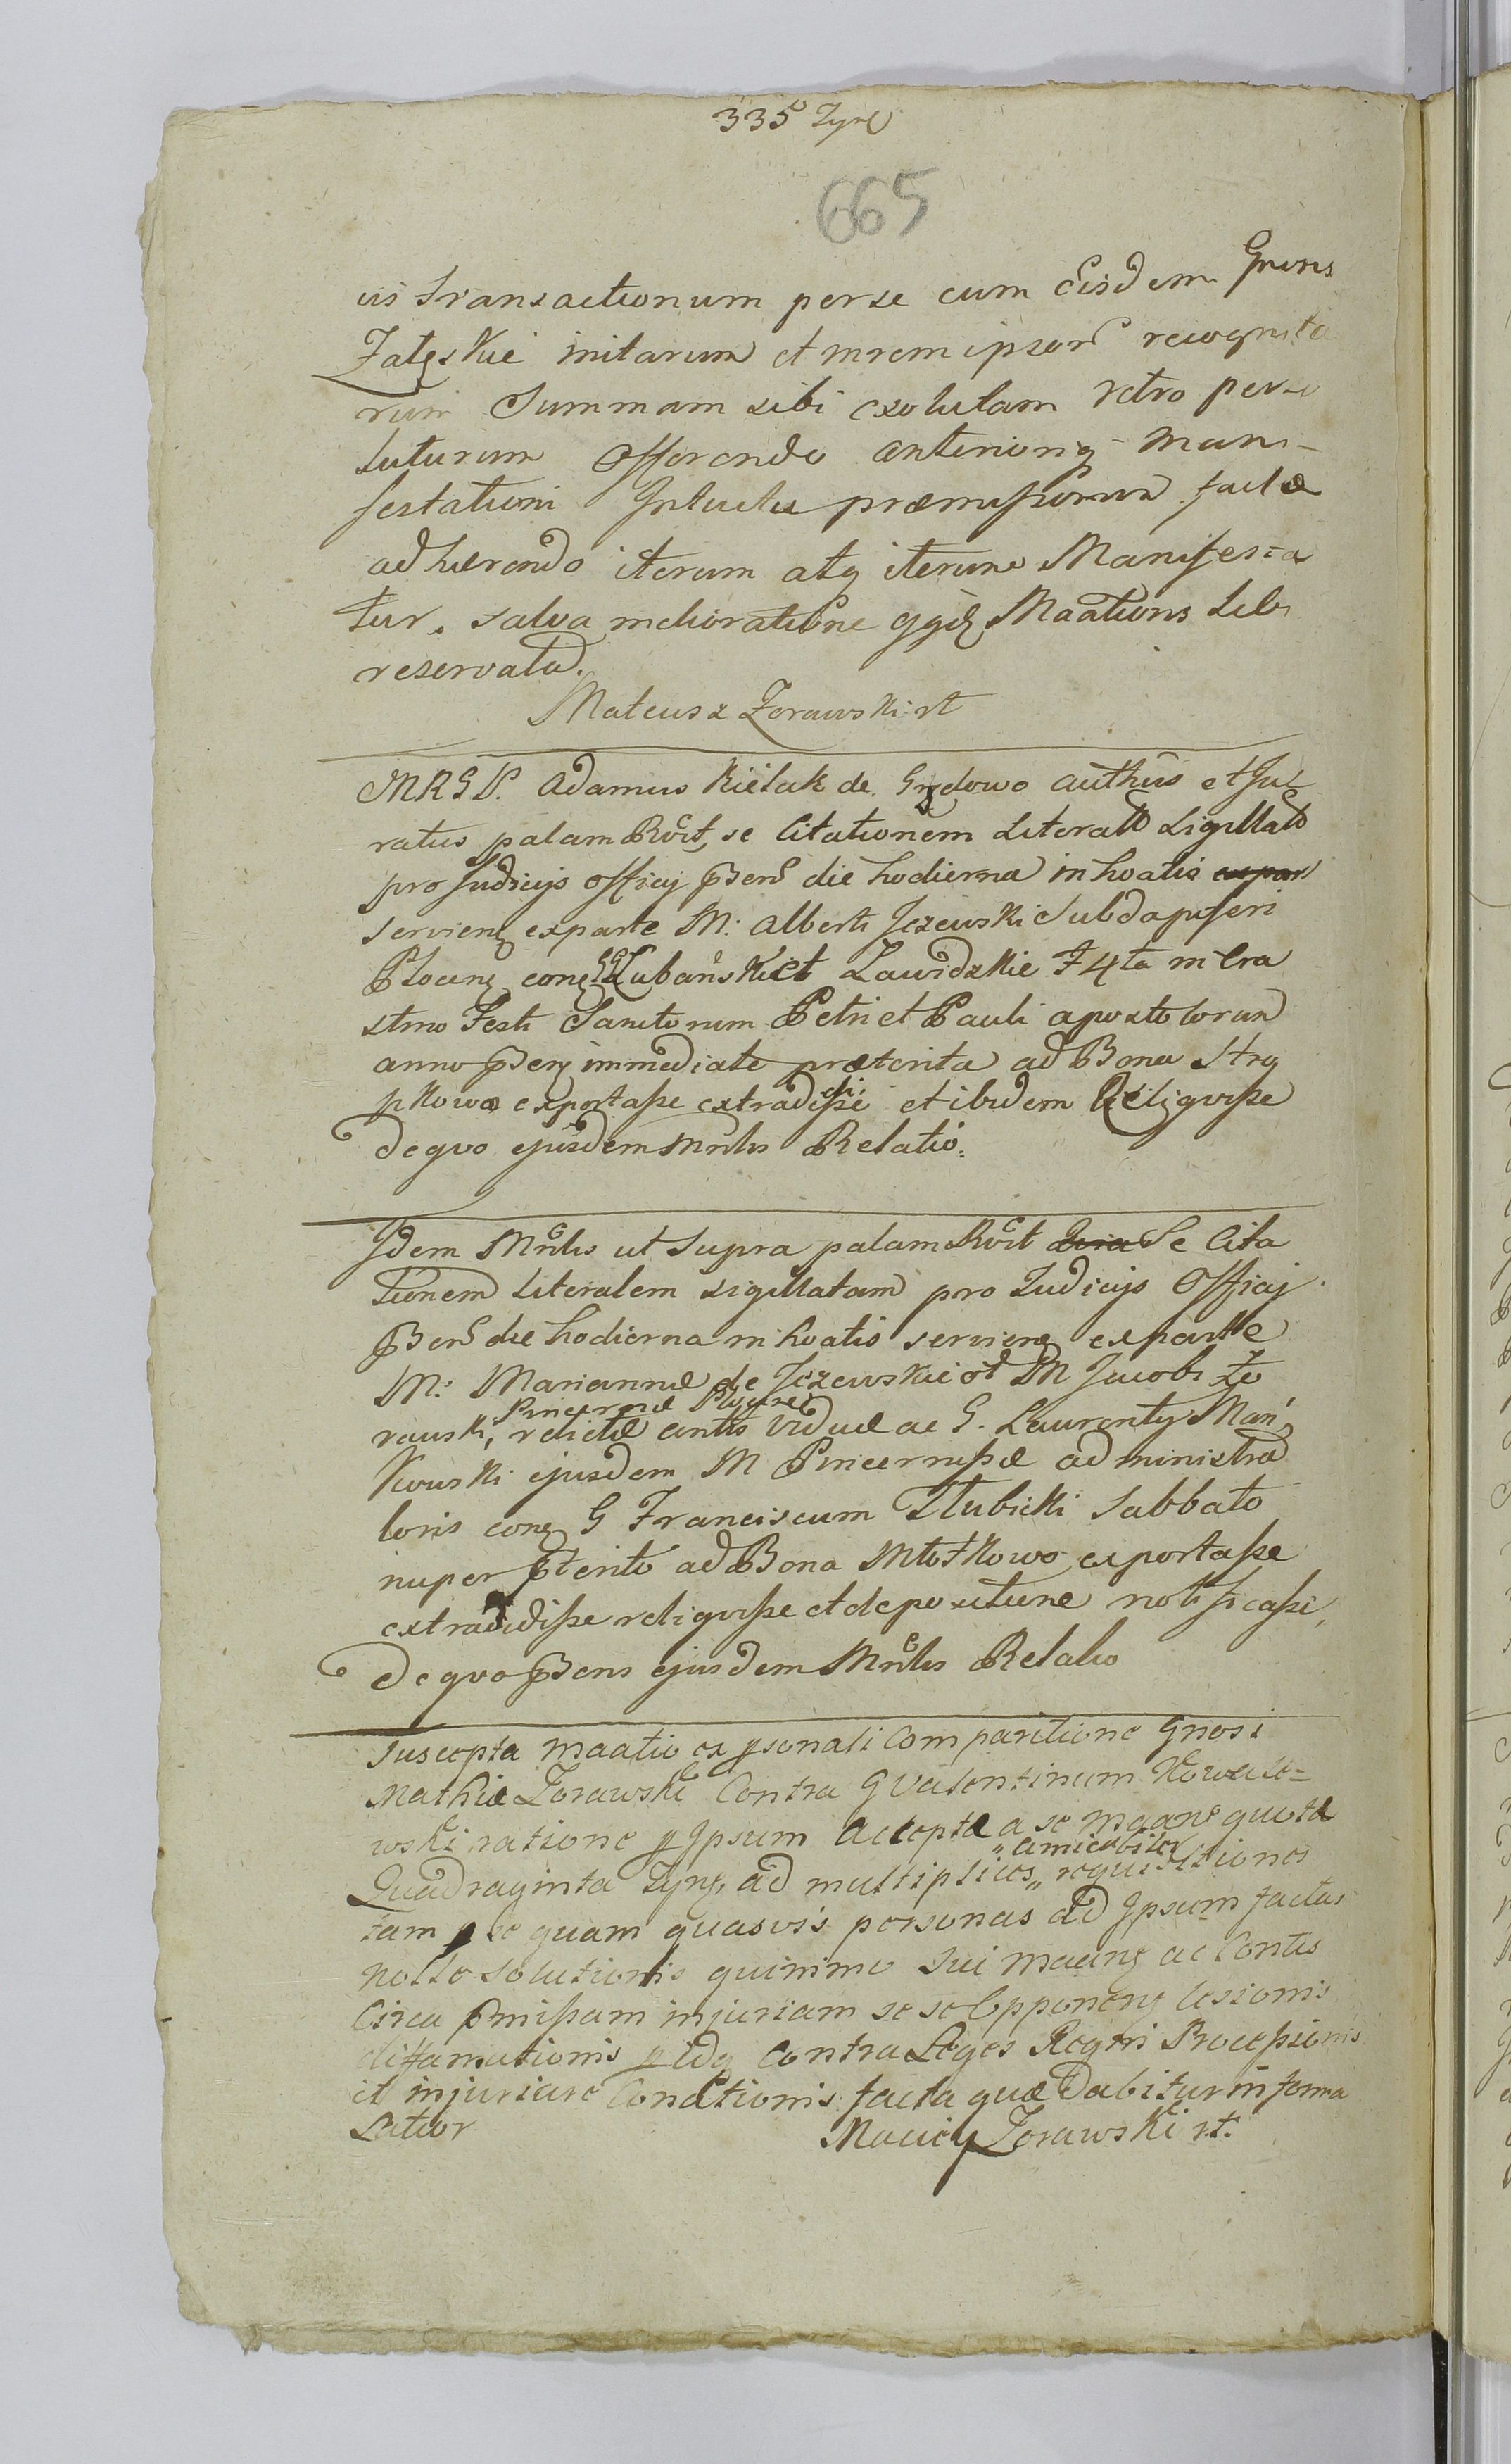 335
665
us transactionum per se cum Eisdem Gnens
Załęskie initarum et mrem ipsor recognito
rum Summam sibi exolutam retro perso
luturum Offerendo anteriorig mani-
festationi Intuitu præmissorum factæ
adhærendo iterum atq iterum Manifesta
tur. salva melioratione Maations sibi
reservata.
Mateusz Zorawski rt
MRGP. Adamus Kiełak de authus et Ju
ratus palam Rcit, se Citationem Literalē Sigillatā
pro Judicijs Officij Psens die hodierna inhoatis
serviens ex parte M: Alberti Jezewski Subdapiferi
Plocens cons GG Łubański et Zawidzkie F 4ta in Cra
stino Festi Sanctorum Petri et Pauli apostolorum
anno Psens immediate præterita ad Bona
exportasse extradidisse et ibidem Reliquisse
de quo ejusdem Mrlis Relatio.
Idem Mrlis ut Supra palam Rcit Se Cita
tionem Literalem sigillatam pro Judicijs Officij
Psens die hodierna inhoatis serviens ex parte
M: Mariannæ de Jezewskie ol M Jacobi Żo
rawski, Pincernæ relictæ cntis Viduæ ac G. Laurenty Mań
kowski ejusdem M Pincernissæ administra
toris cons G Franciscum Słubicki Sabbato
nuper Pterito ad Bona Młotkowo exportasse
extradidisse reliquisse et depositione notificasse,
de quo Psens ejusdem Mrlis Relatio
Suscepta Maatio ex psonali Comparitione Gnosi
Mathiæ Zorawski Contra G Valentinum Kowale=
wski ratione p Ipsum acceptæ a se quotæ
Quadraginta ad multiplices „amicabiles„ requisitiones
tam p se quam quasvis personas ad Ipsum factas
nolle solutionis quinimo sui ac Contis
Circa Pmissam injuriam se se Opponens lesionis
diffamationis contra Leges Regni Processionis
et injuriare Condictionis facta quæ Dabitur in forma
Latior
Maciey Zorawski rt.